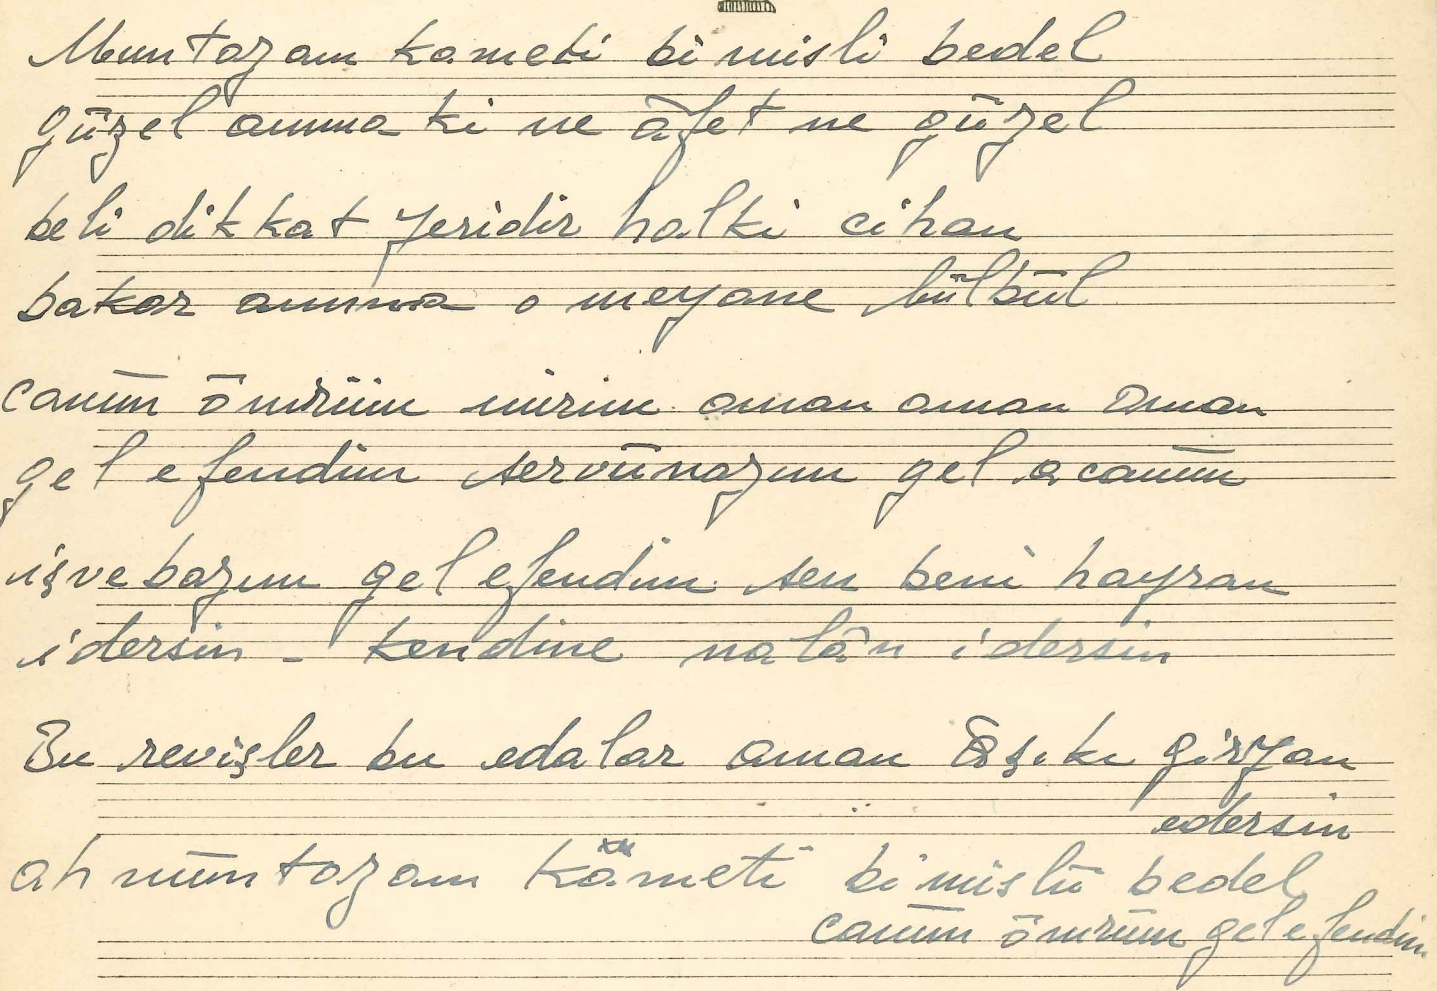 Muntazam kameti bi misli bedel
güzel amma ki ne âfet ne güzel
beli dikkat yeridir halki cihan
bakar amma o meyane bülbül
canüm ömrüm mirim aman aman aman
gel efendim servünazım gel a canüm
işvebazım gel efendim sen beni hayran
idersin - kendine nalân idersin
Bu revişler bu edalar aman âşıkı giryan
edersin
ah müntazam kâmeti bi mislü bedel
canüm ömrüm gel efendim